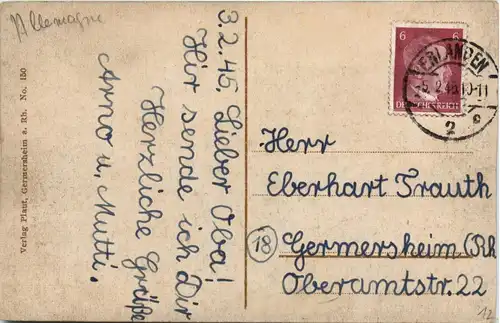 Allemagne
3.2.45. Lieber Oba!
Hir sende ich Dir
Herzliche Grüße
Arno u. Mutti.
Verlag Plaut, Germersheim a. Rh. No. 150
6 6
DEUTSCHES REICH
ERLANGEN
5.2.45.10-11
2 c
Herr
Eberhart Trauth
18
Germersheim (Rh
Oberamtstr. 22
12